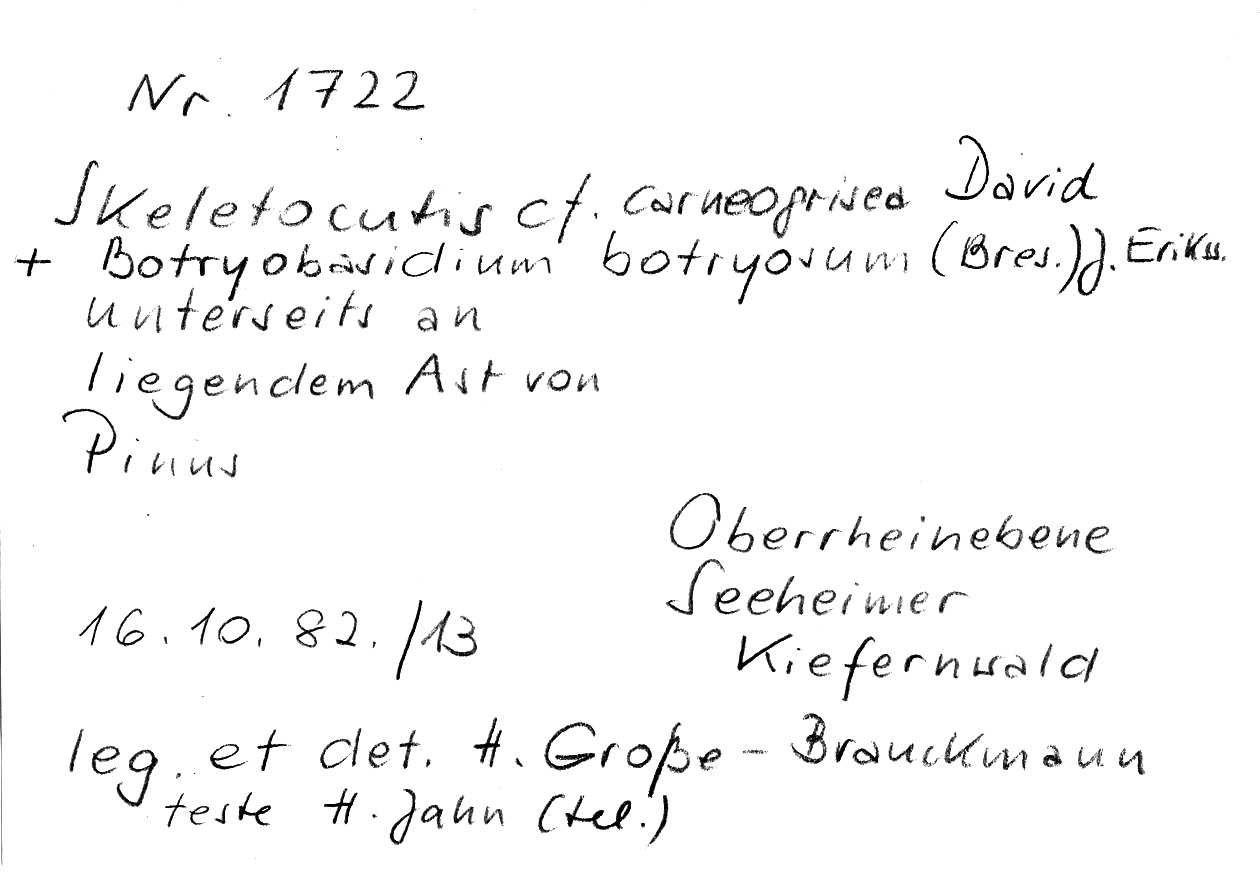 Nr. 1722
Skeletocutis cf. carneogrisea David
+ Botryobasidium botryosum (Bres.) J. Erikss.
unterseits an
liegendem Ast von
Pinus
Oberrheinebene
Seeheimer
Kiefernwald
16.10.82./13
leg. et det. H. Große-Brauckmann
teste H. Jahn (tel.)